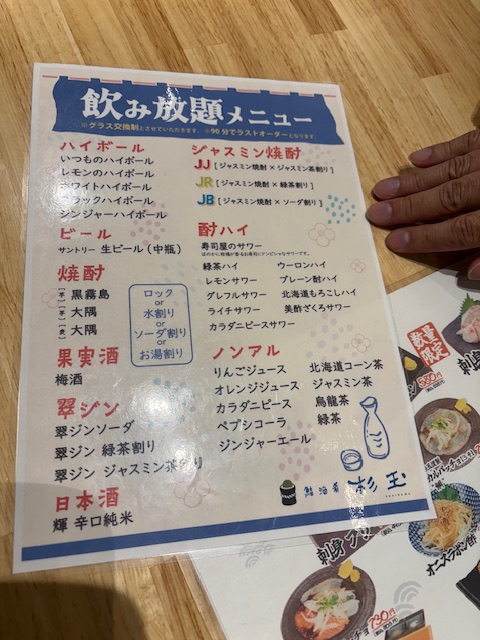 飲み放題メニュー
※グラス交換制とさせていただきます。 ※90分でラストオーダーとなります。
ハイボール
いつものハイボール
レモンのハイボール
ホワイトハイボール
ブラックハイボール
ジンジャーハイボール
ビール
サントリー 生ビール (中瓶)
焼酎
[芋] 黒霧島
[芋] 大隅
[麦] 大隅
ロック
or
水割り
or
ソーダ割り
or
お湯割り
果実酒
梅酒
翠ジン
翠ジンソーダ
翠ジン 緑茶割り
翠ジン ジャスミン茶割り
日本酒
輝 辛口純米
ジャスミン焼酎
JJ [ジャスミン焼酎 × ジャスミン茶割り]
JR [ジャスミン焼酎 × 緑茶割り]
JB [ジャスミン焼酎 × ソーダ割り]
酎ハイ
寿司屋のサワー
ほのかに柑橘が香るお寿司にドンピシャなサワーです。
緑茶ハイ ウーロンハイ
レモンサワー プレーン酎ハイ
グレフルサワー 北海道もろこしハイ
ライチサワー 美酢ざくろサワー
カラダニピースサワー
ノンアル
りんごジュース 北海道コーン茶
オレンジジュース ジャスミン茶
カラダニピース 烏龍茶
ペプシコーラ 緑茶
ジンジャーエール
鮨 酒 肴 杉玉
数量限定
刺身
オニスラポン酢
730円